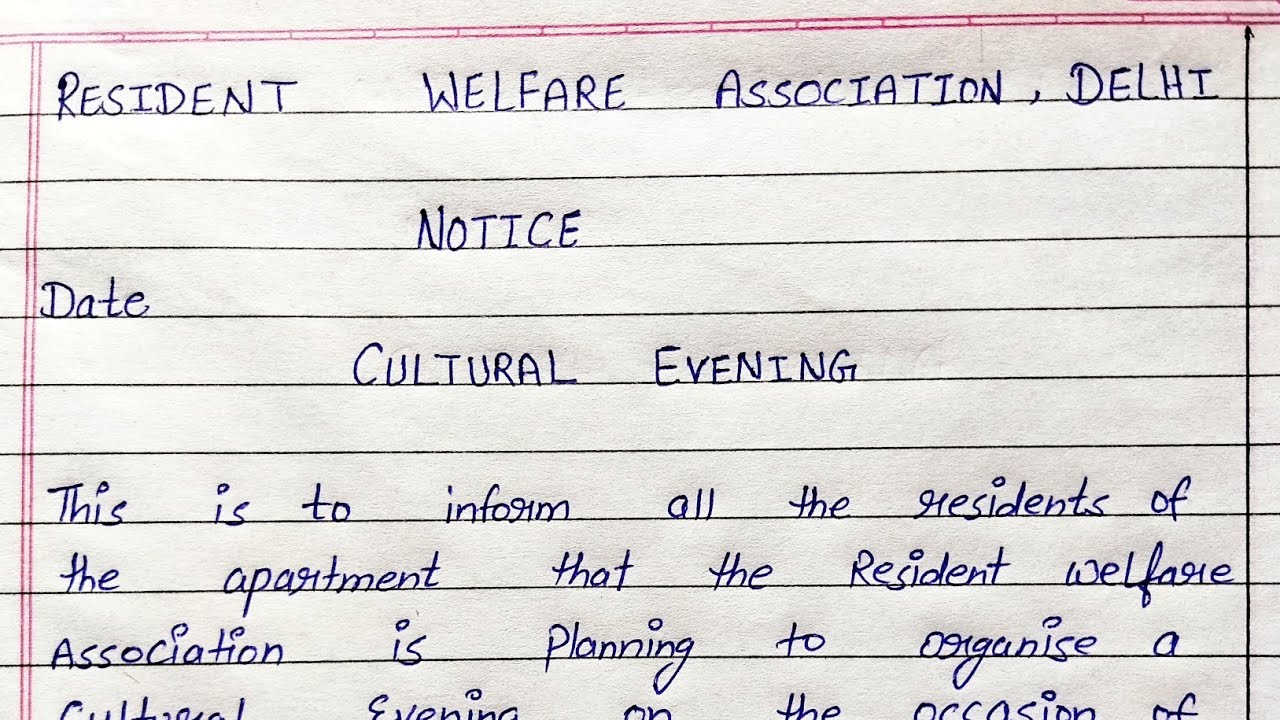 RESIDENT WELFARE ASSOCIATION, DELHI
NOTICE
Date
CULTURAL EVENING
This is to inform all the residents of
the apartment that the Resident welfare
Association is Planning to organise a
Cultural Evening on the occasion of